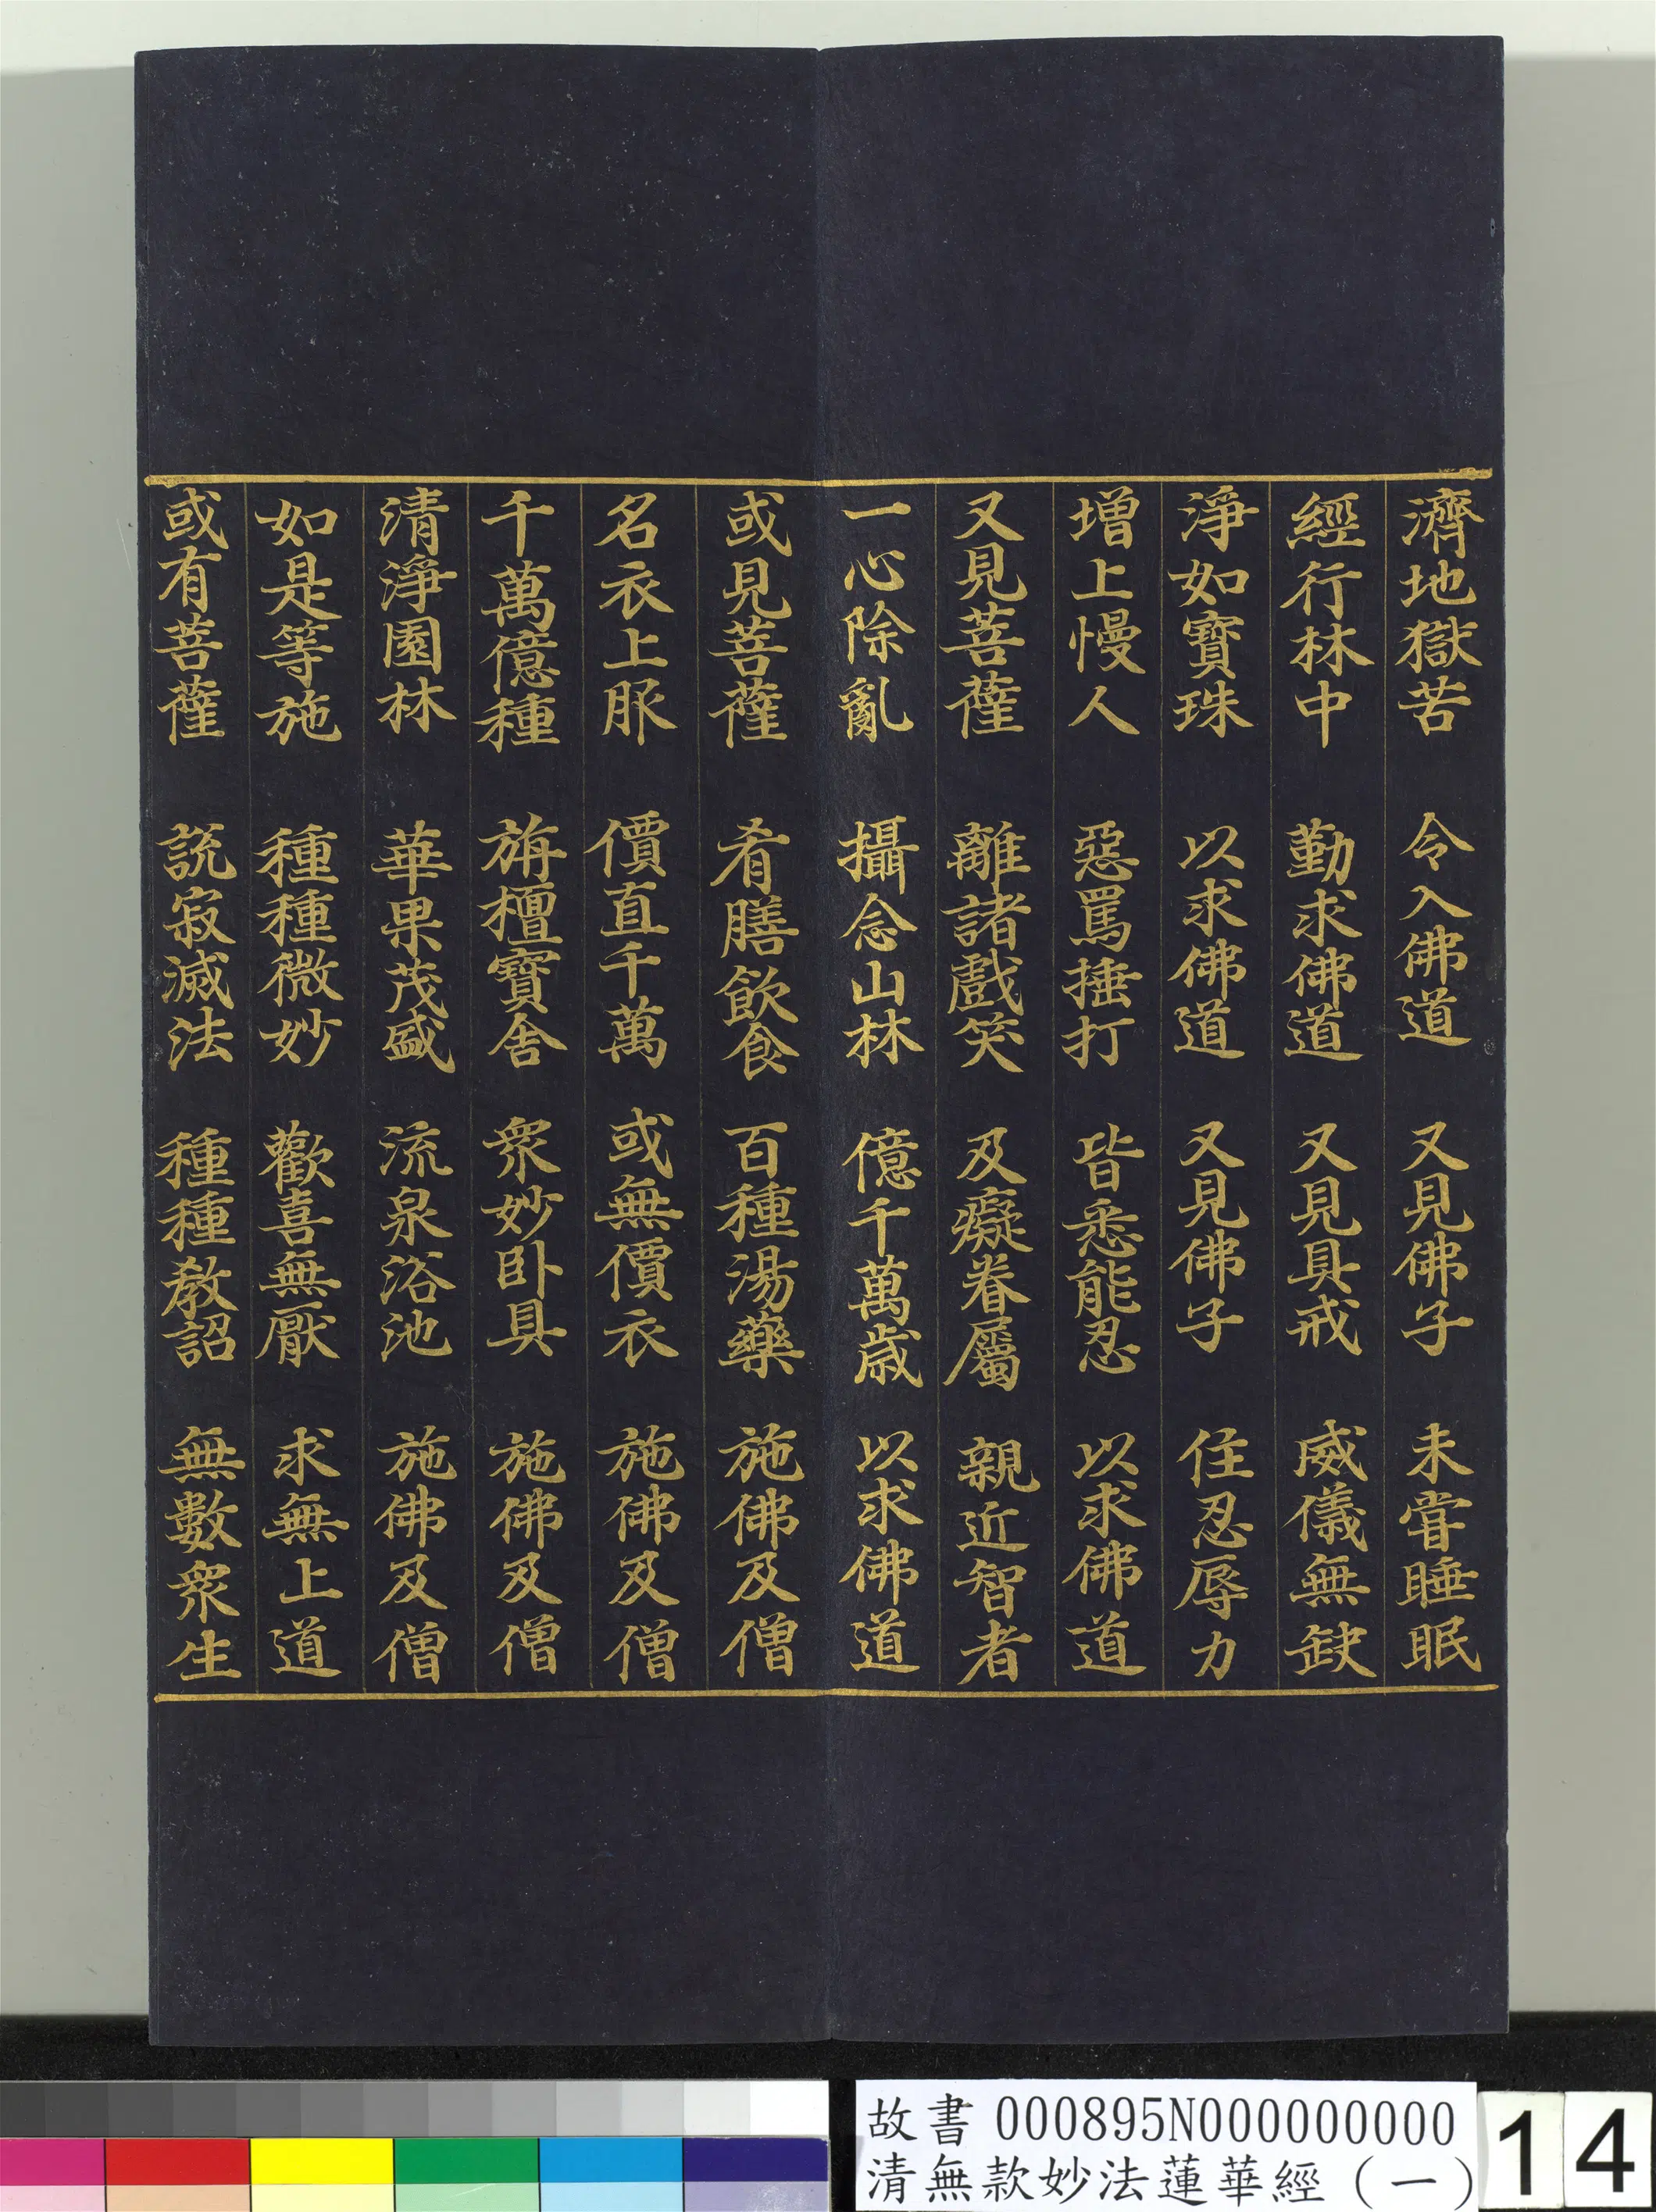 濟地獄苦　令入佛道　又見佛子　未甞睡眠
經行林中　勤求佛道　又見具戒　威儀無缺
淨如寶珠　以求佛道　又見佛子　住忍辱力
增上慢人　惡罵捶打　皆悉能忍　以求佛道
又見菩薩　離諸戲笑　及癡眷屬　親近智者
一心除亂　攝念山林　億千萬歲　以求佛道
或見菩薩　肴膳飲食　百種湯藥　施佛及僧
名衣上服　價直千萬　或無價衣　施佛及僧
千萬億種　旃檀寶舍　衆妙卧具　施佛及僧
清淨園林　華果茂盛　流泉浴池　施佛及僧
如是等施　種種微妙　歡喜無厭　求無上道
或有菩薩　說寂滅法　種種教詔　無數衆生
故書 000895N000000000
清無款妙法蓮華經（一）
14